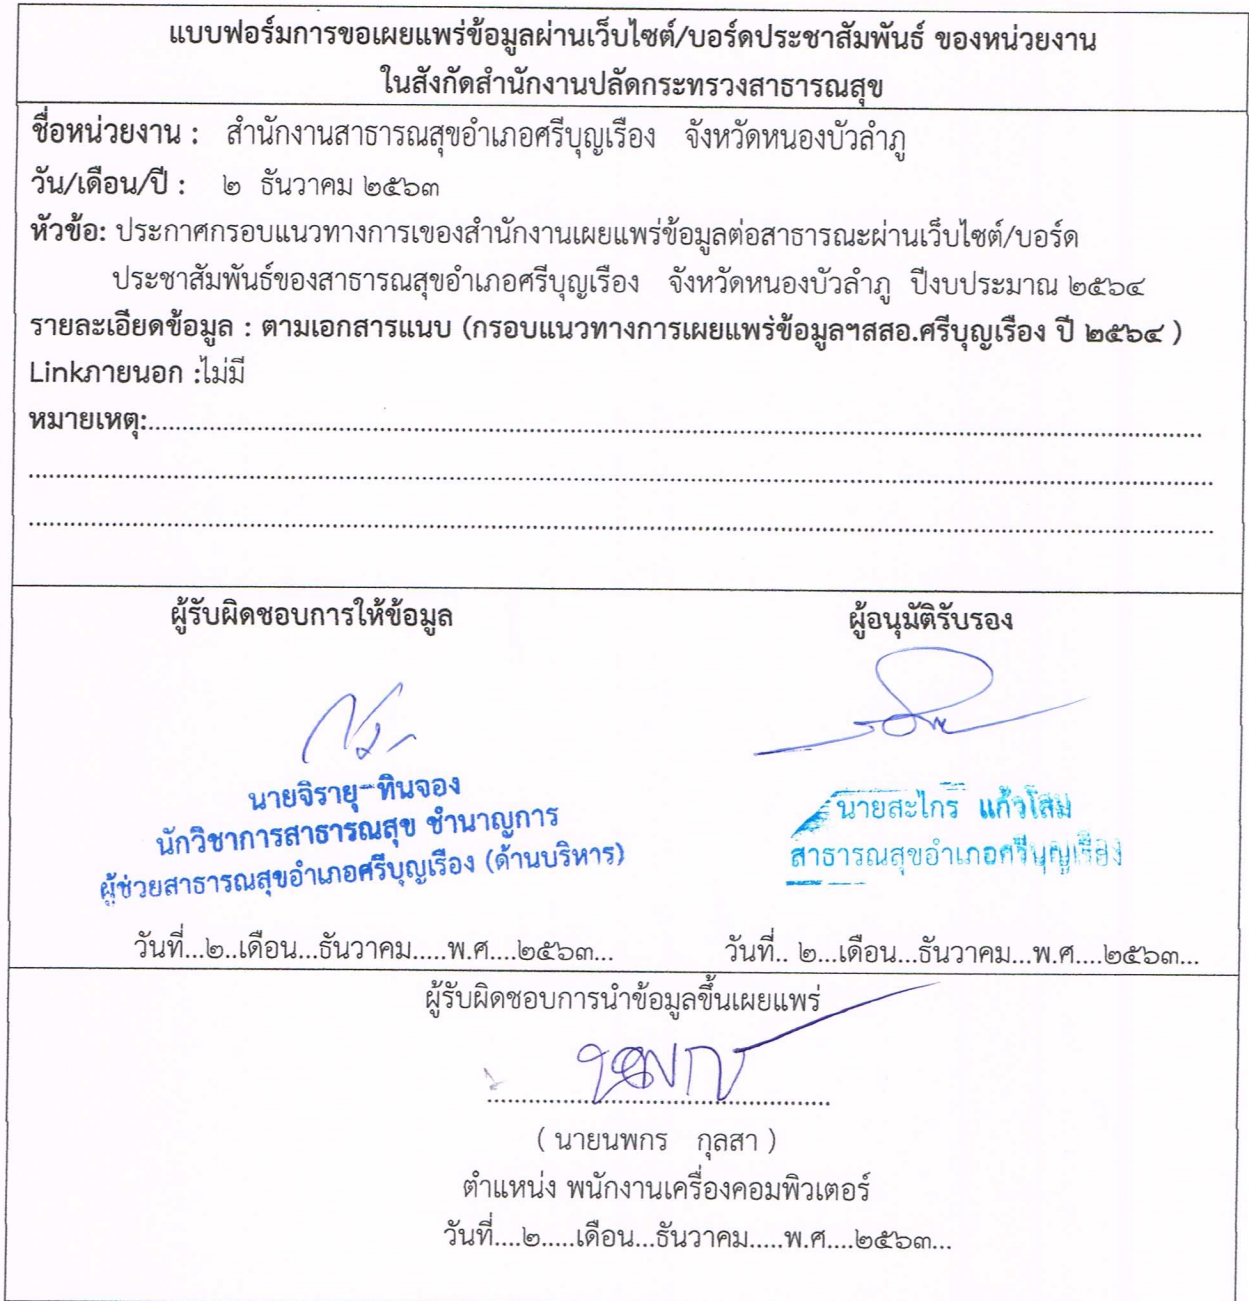 แบบฟอร์มการขอเผยแพร่ข้อมูลผ่านเว็บไซต์/บอร์ดประชาสัมพันธ์ ของหน่วยงาน
ในสังกัดสำนักงานปลัดกระทรวงสาธารณสุข
ชื่อหน่วยงาน : สำนักงานสาธารณสุขอำเภอศรีบุญเรือง จังหวัดหนองบัวลำภู
วัน/เดือน/ปี : ๒ ธันวาคม ๒๕๖๓
หัวข้อ: ประกาศกรอบแนวทางการเของสำนักงานเผยแพร่ข้อมูลต่อสาธารณะผ่านเว็บไซต์/บอร์ด
ประชาสัมพันธ์ของสาธารณสุขอำเภอศรีบุญเรือง จังหวัดหนองบัวลำภู ปีงบประมาณ ๒๕๖๔
รายละเอียดข้อมูล : ตามเอกสารแนบ (กรอบแนวทางการเผยแพร่ข้อมูลฯสสอ.ศรีบุญเรือง ปี ๒๕๖๔ )
Linkภายนอก :ไม่มี
หมายเหตุ:..........
ผู้รับผิดชอบการให้ข้อมูล
นายจิรายุ ทินจอง
นักวิชาการสาธารณสุข ชำนาญการ
ผู้ช่วยสาธารณสุขอำเภอศรีบุญเรือง (ด้านบริหาร)
วันที่...๒..เดือน...ธันวาคม.....พ.ศ....๒๕๖๓...
ผู้อนุมัติรับรอง
นายสะไกร แก้วโสม
สาธารณสุขอำเภอศรีบุญเรือง
วันที่.. ๒...เดือน...ธันวาคม...พ.ศ....๒๕๖๓...
ผู้รับผิดชอบการนำข้อมูลขึ้นเผยแพร่
( นายนพกร กุลสา )
ตำแหน่ง พนักงานเครื่องคอมพิวเตอร์
วันที่....๒.....เดือน...ธันวาคม.....พ.ศ....๒๕๖๓...